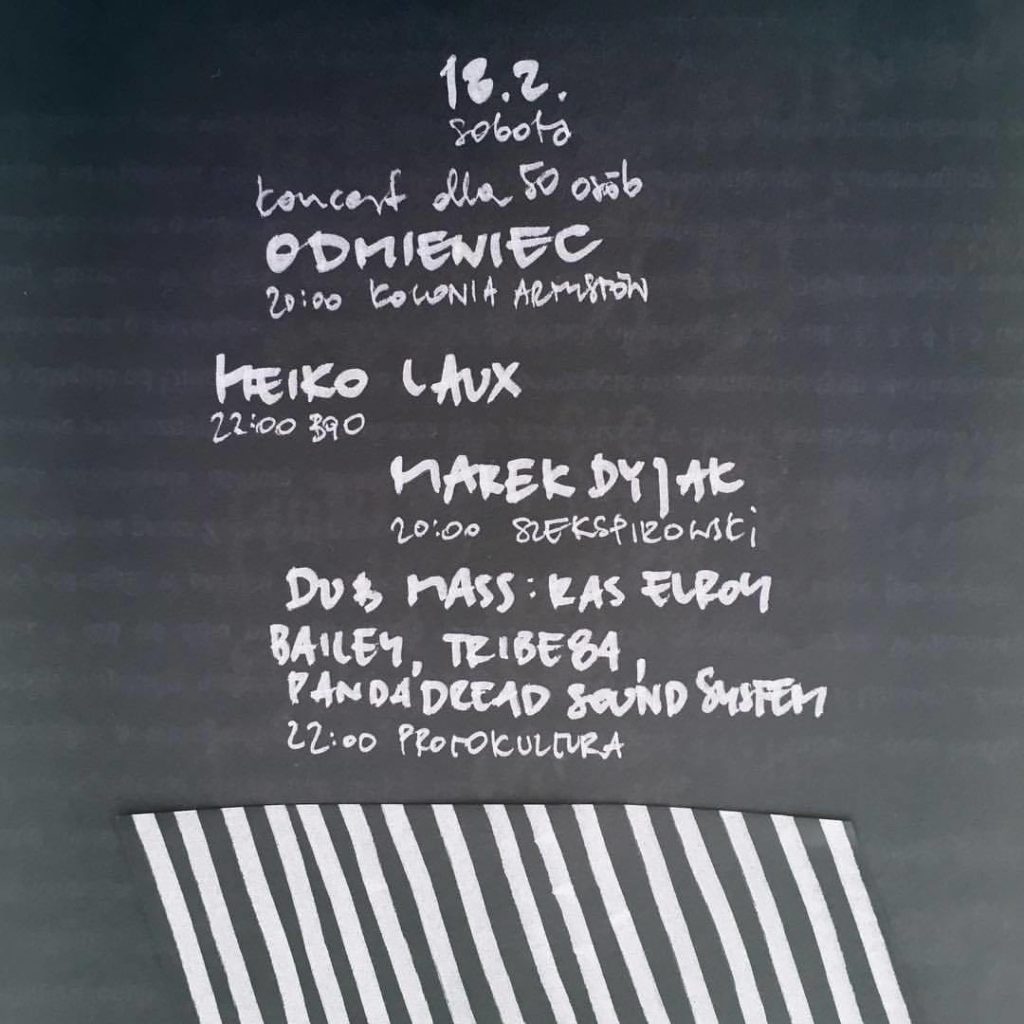 18.2.
sobota
koncert dla 50 osób
ODMIENIEC
20:00 KOLONIA ARTYSTÓW
HEIKO LAUX
22:00 B90
MAREK DYJAK
20:00 SZEKSPIROWSKI
DUB MASS: RAS ELROY
BAILEY, TRIBEBA,
PANDADREAD SOUND SYSTEM
22:00 PROTOKULTURA